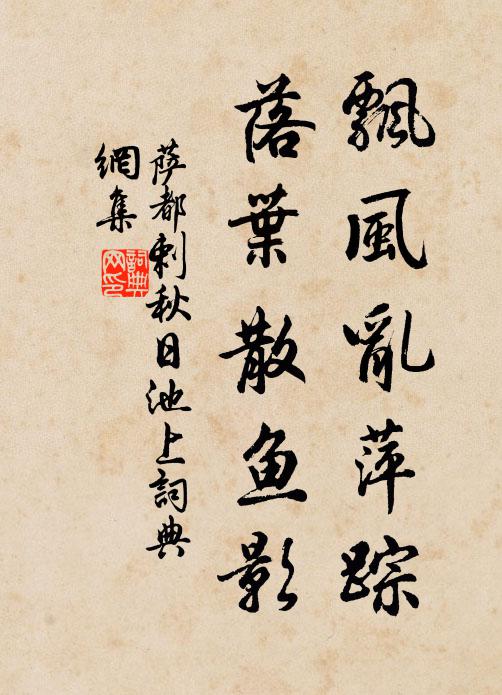 飄風亂萍踪
落葉散魚影
薩都剌秋日池上詞典
網集
詞典
网印